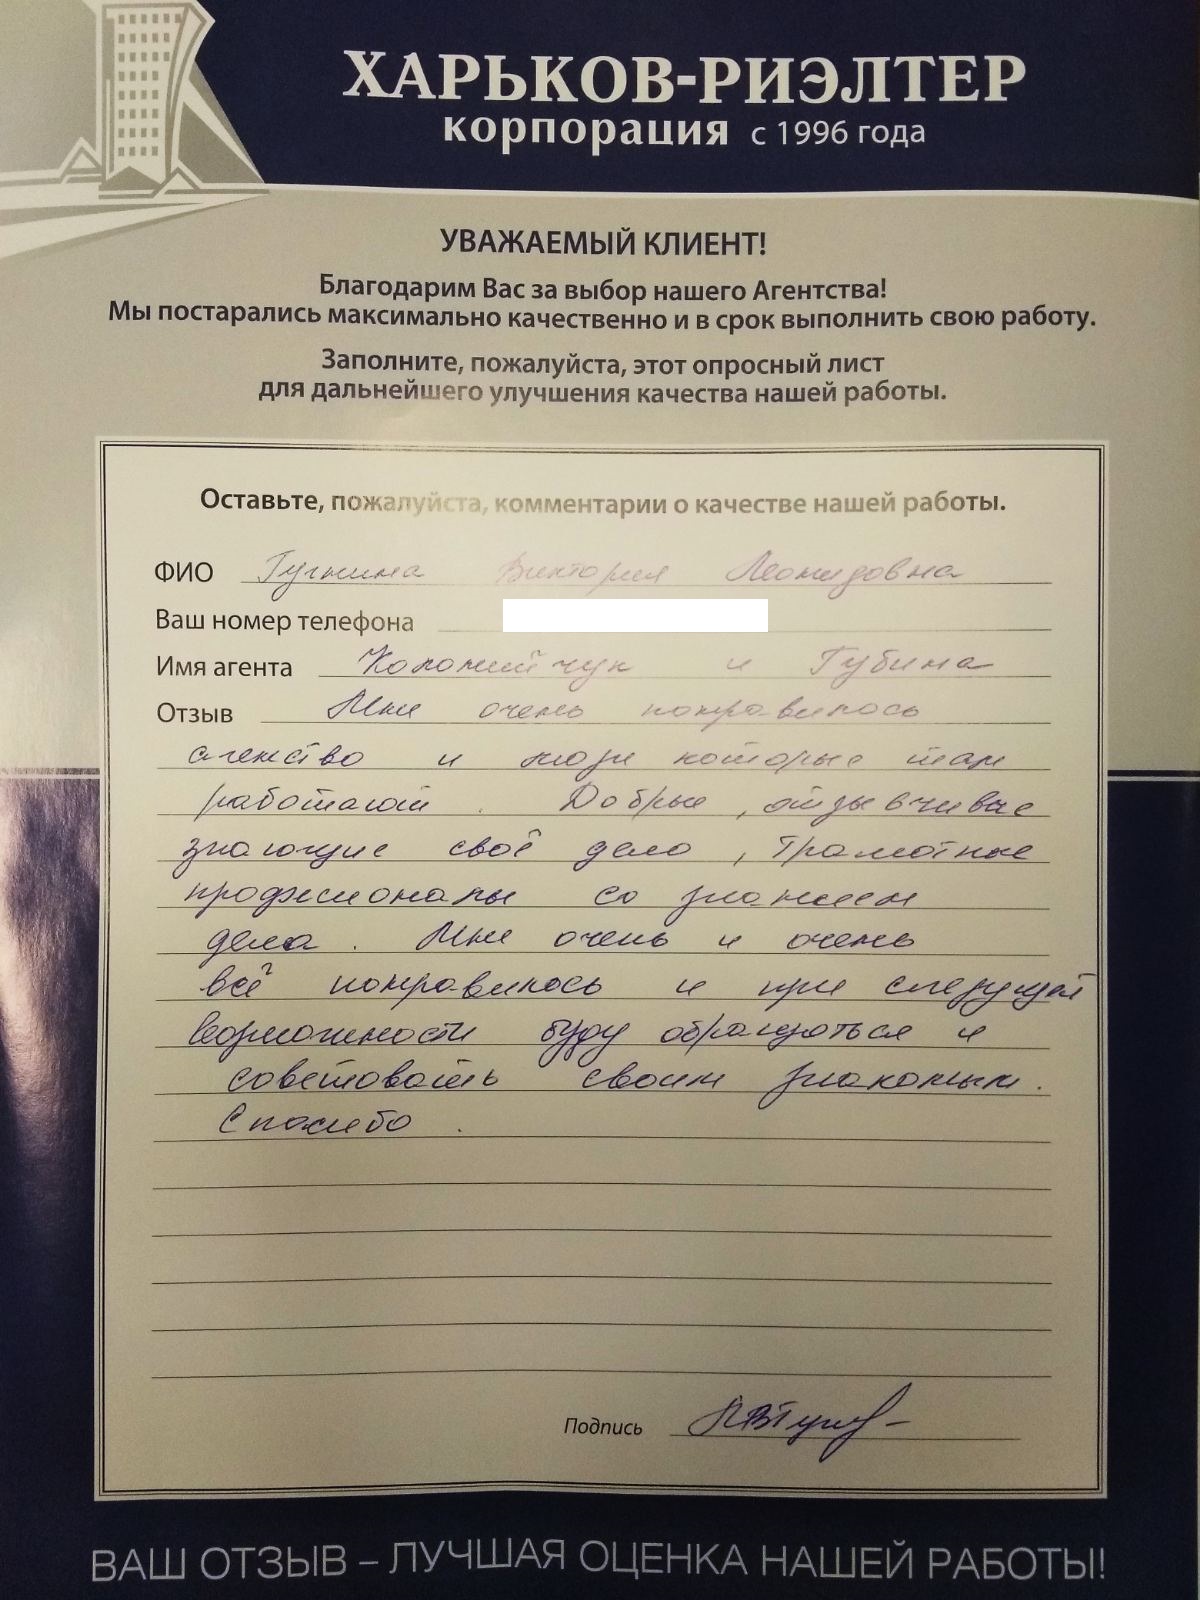 ХАРЬКОВ-РИЭЛТЕР
корпорация с 1996 года
УВАЖАЕМЫЙ КЛИЕНТ!
Благодарим Вас за выбор нашего Агентства!
Мы постарались максимально качественно и в срок выполнить свою работу.
Заполните, пожалуйста, этот опросный лист
для дальнейшего улучшения качества нашей работы.
Оставьте, пожалуйста, комментарии о качестве нашей работы.
ФИО Виктория Леонидовна
Ваш номер телефона
Имя агента Коломийчук и Губина
Отзыв Мне очень понравилось
агенство и люди которые там
работают. Добрые, отзывчивые
знающие своё дело, грамотные
професионалы со знанием
дела. Мне очень и очень
всё понравилось и при следущей
возможности буду обращаться и
советовать своим знакомым.
Спасибо.
Подпись
ВАШ ОТЗЫВ – ЛУЧШАЯ ОЦЕНКА НАШЕЙ РАБОТЫ!